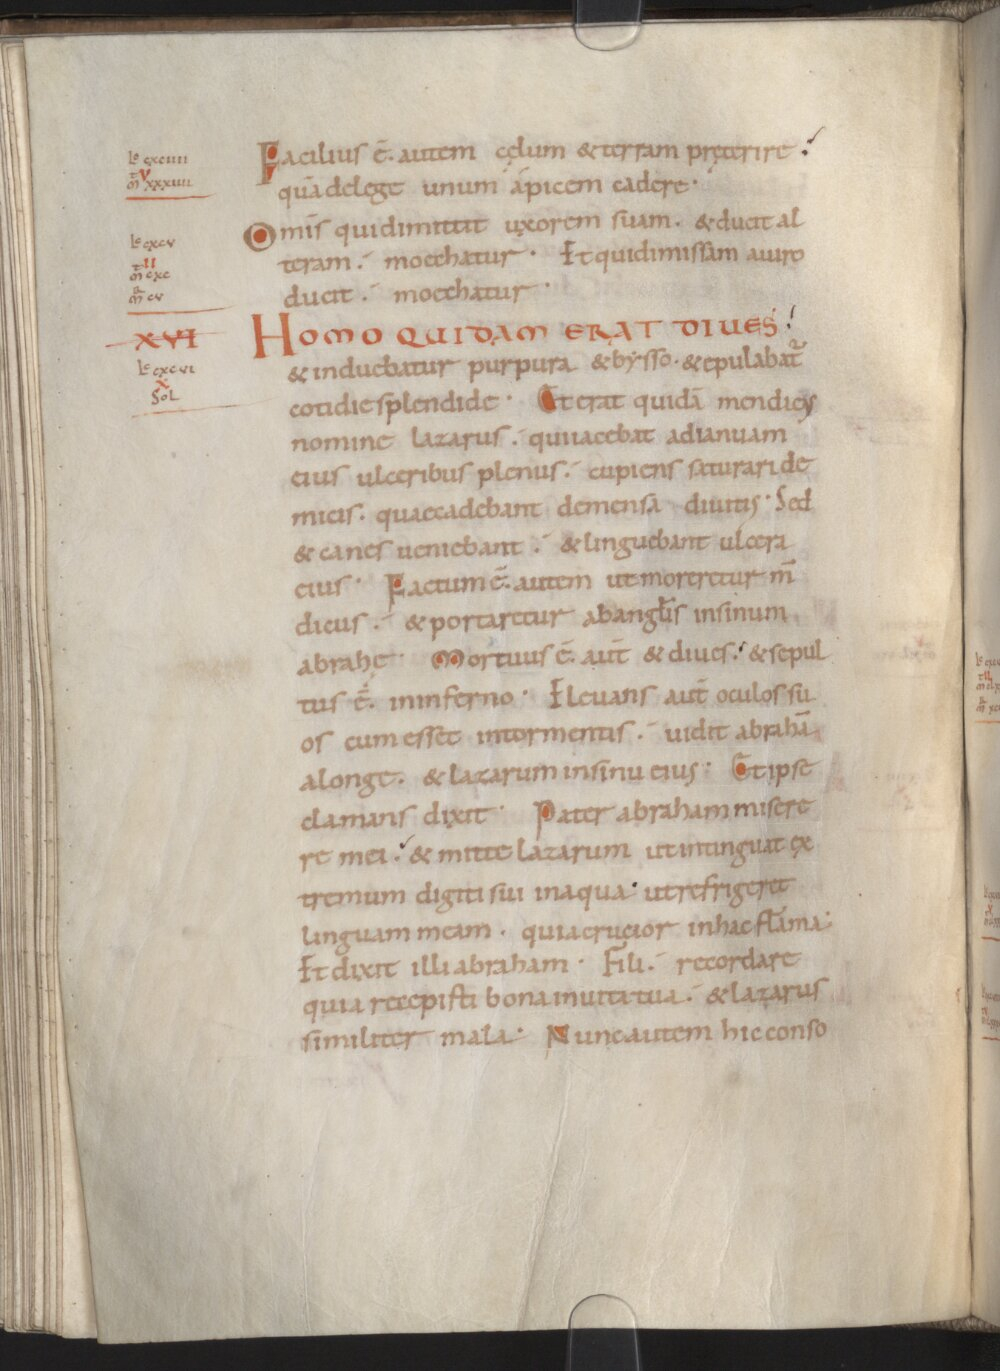 Lc cxciiii
v
mt xxxiiii
Lc cxcv
ii
mt cxc
mr cv
XVI
Lc cxcvi
x
Sol
Facilius ē. autem cęlum & terram pręterire
quā delege unum apicem cadere·
Omīs quidimittit uxorem suam. & ducit al
teram. moechatur · Et quidimissam auiro
ducit. moechatur ·
HOMO QUIDAM ERAT DIUES
& induebatur purpura & bysso· & epulabat᷑
cotidie splendide · Et erat quidā mendicus
nomine lazarus. quiiacebat adianuam
eius ulceribus plenus. cupiens saturari de
micis. quaecadebant demensa diuitis· Sed
& canes ueniebant. & linguebant ulcera
eius · Factum ē. autem ut moreretur m̄
dicus. & portaretur abangłis insinum
abrahę · Mortuus ē. aut̄ & diues. & sepul
tus ē. ininferno · Eleuans aut̄ oculos su
os cum esset intormentis. uidit abrahā
alonge. & lazarum insinu eius · Et ipse
clamans dixit · Pater abraham misere
re mei. & mitte lazarum ut intinguat ex
tremum digiti sui inaqua· ut refrigeret
linguam meam. quiacrucior inhac flāma·
Et dixit illi abraham · Fili. recordare
quia recepisti bona inuita tua. & lazarus
similiter mala · Nunc autem hic conso